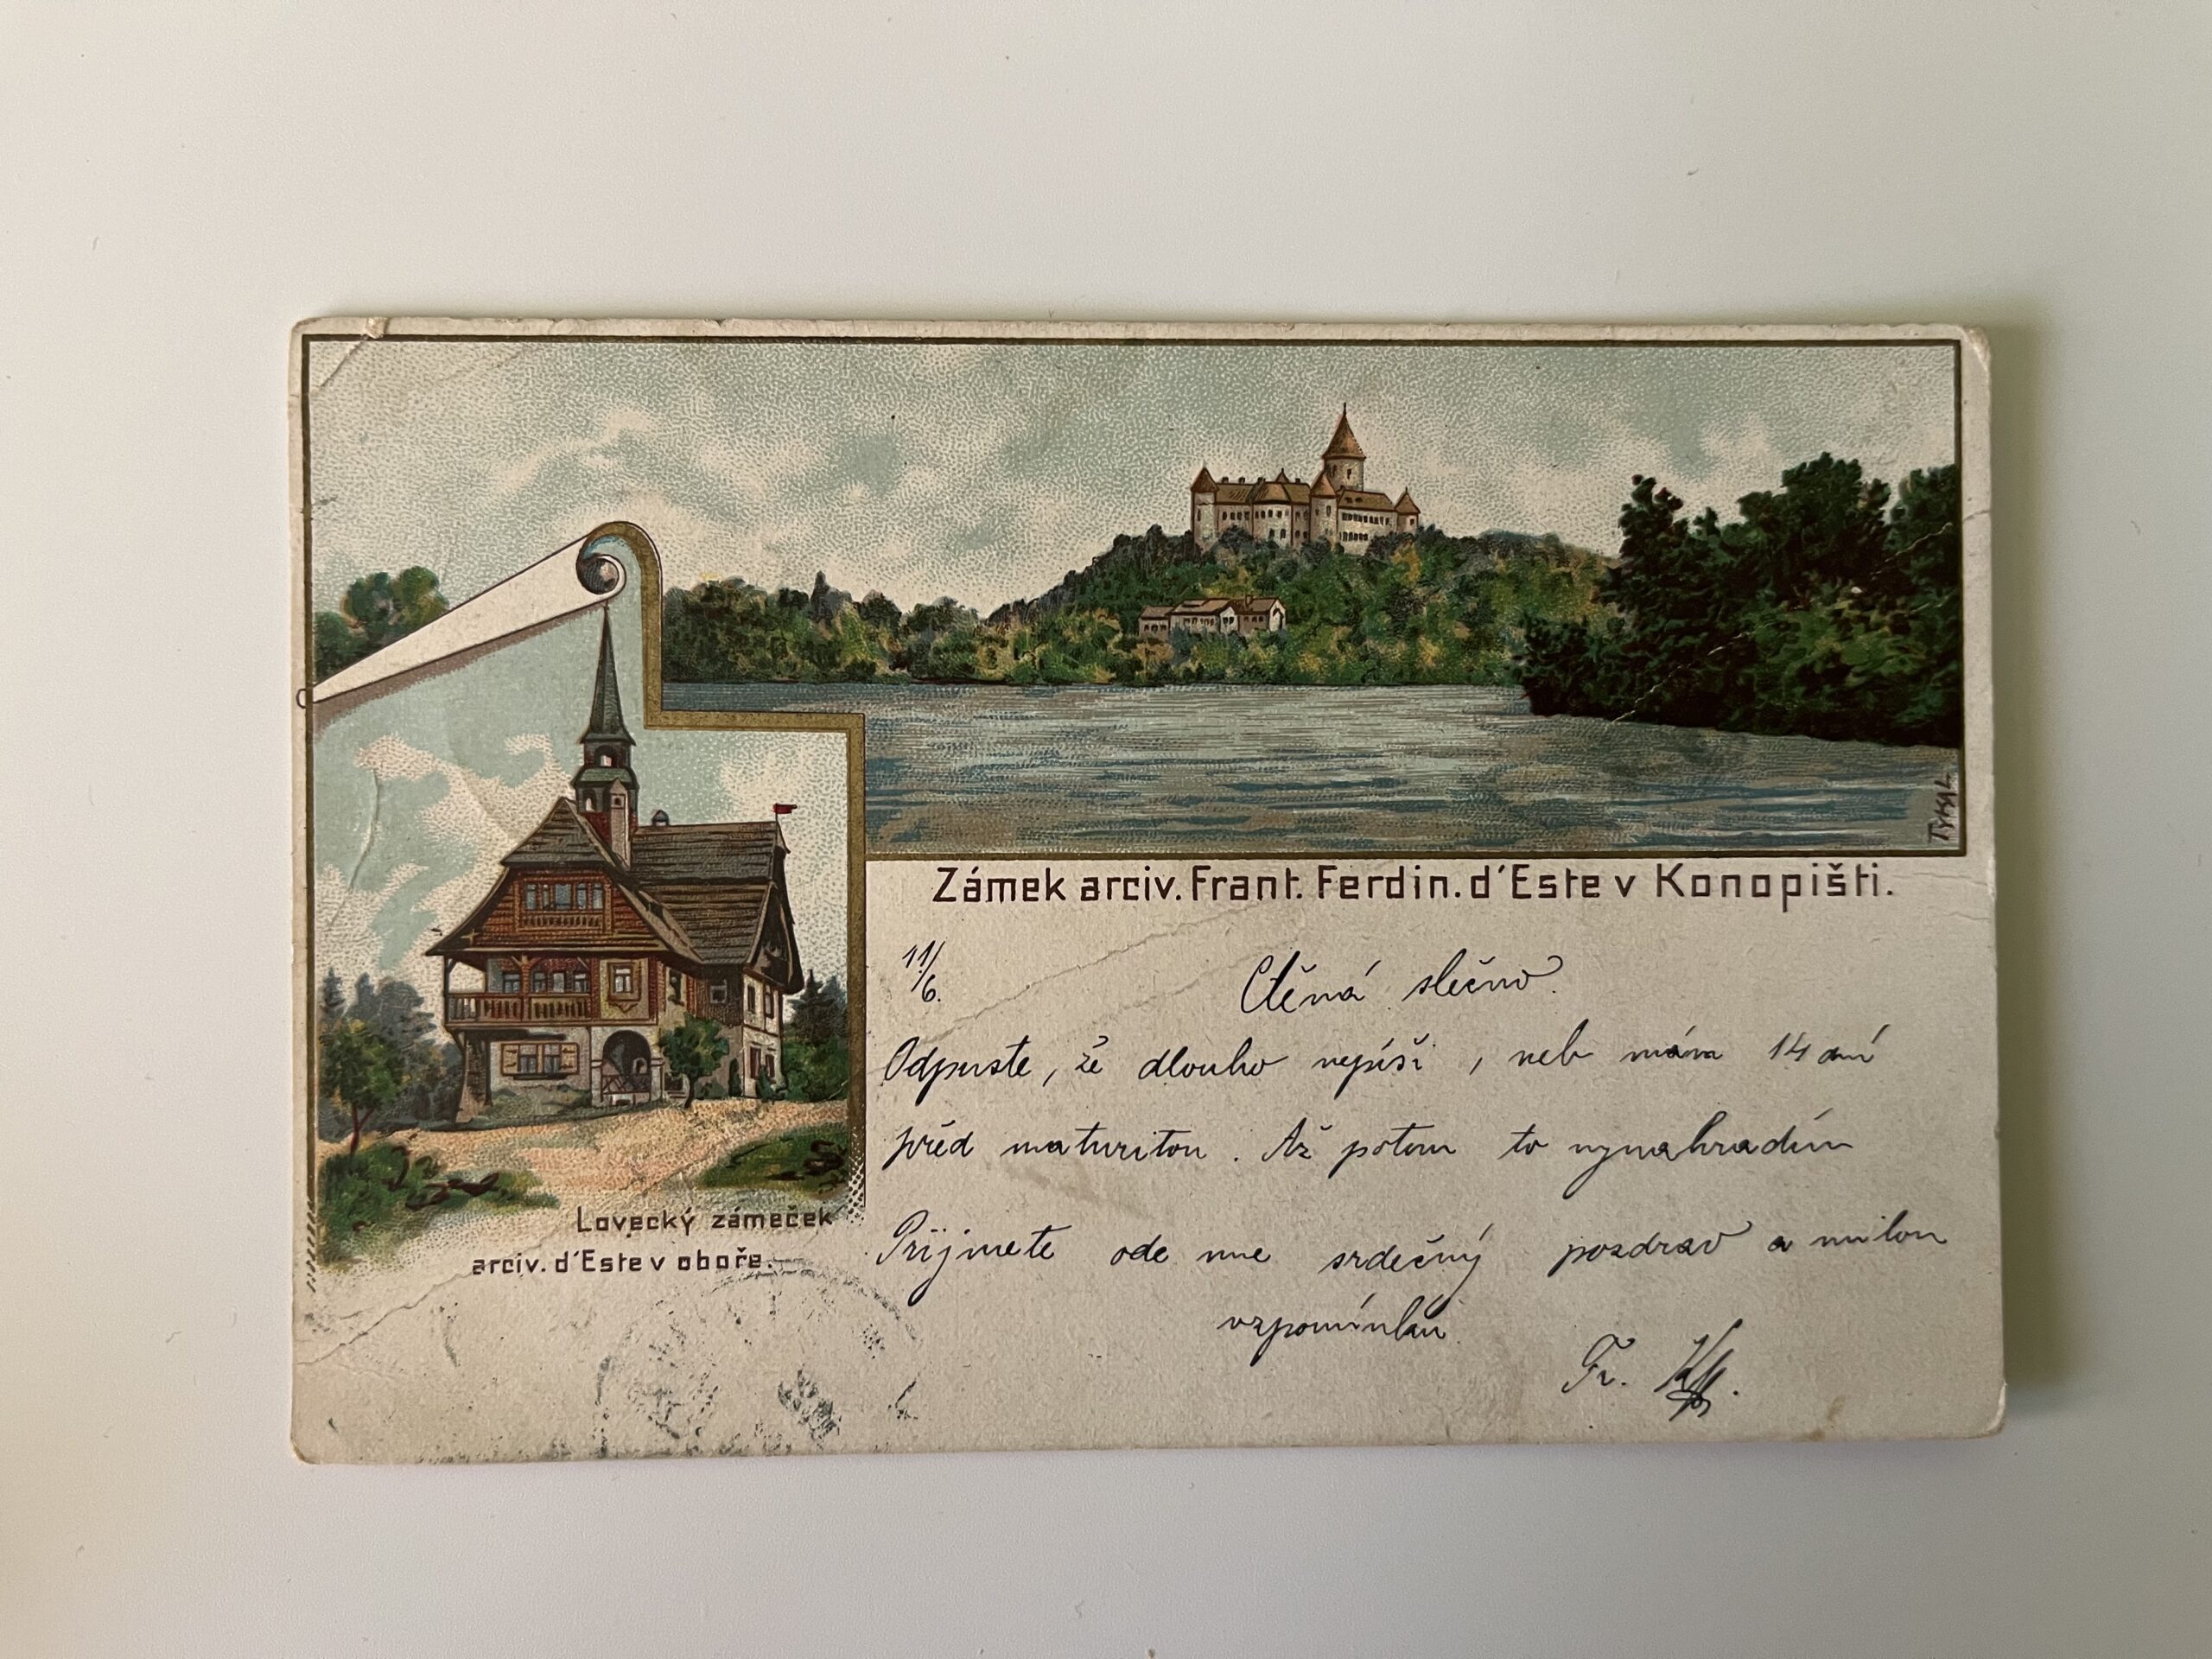 Zámek arciv. Frant. Ferdin. d'Este v Konopišti.
TYKAL
Lovecký zámeček
arciv. d'Este v oboře.
11/6.
Ctěná slečno
Odpuste, že dlouho nepíši, neb mám 14 dní
před maturitou. Až potom to vynahradím
Přijmete ode mne srdečný pozdrav a milou
vzpomínku.
Fr.